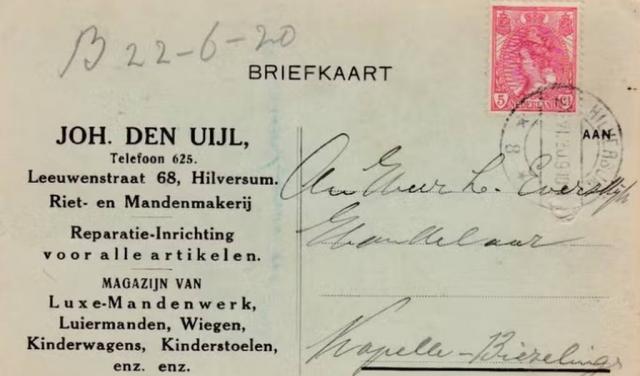 B 22-6-20
BRIEFKAART
5
NEDERLAND
HILVERSUM
8
AAN
JOH. DEN UIJL,
Telefoon 625.
Leeuwenstraat 68, Hilversum.
Riet- en Mandenmakerij
Reparatie-Inrichting
voor alle artikelen.
MAGAZIJN VAN
Luxe-Mandenwerk,
Luiermanden, Wiegen,
Kinderwagens, Kinderstoelen,
enz. enz.
Den Heer L.
Handelaar
Kapelle-Biezelinge